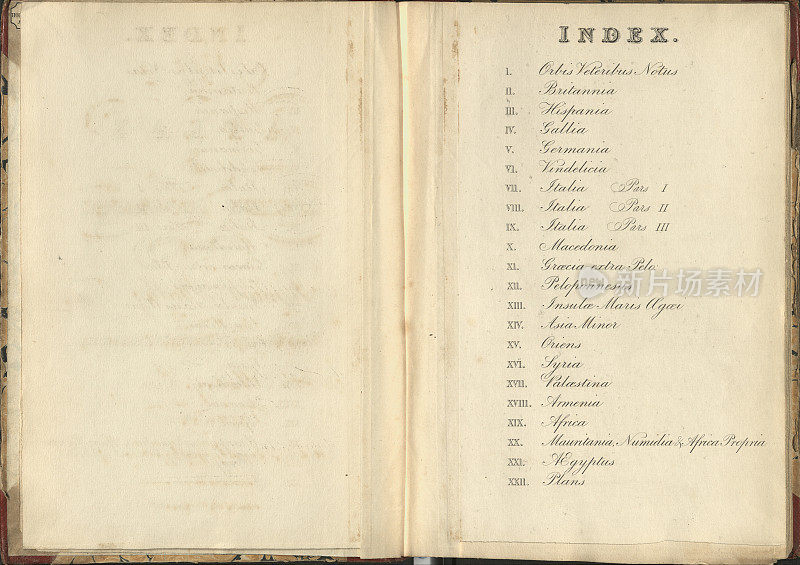 INDEX.
I. Orbis Veteribus Notus
II. Britannia
III. Hispania
IV. Gallia
V. Germania
VI. Vindelicia
VII. Italia Pars I
VIII. Italia Pars II
IX. Italia Pars III
X. Macedonia
XI. Græcia extra Pelo
XII. Peloponnesus
XIII. Insulæ Maris Ægæi
XIV. Asia Minor
XV. Oriens
XVI. Syria
XVII. Palæstina
XVIII. Armenia
XIX. Africa
XX. Mauritania, Numidia & Africa Propria
XXI. Ægyptus
XXII. Plans
INDEX.